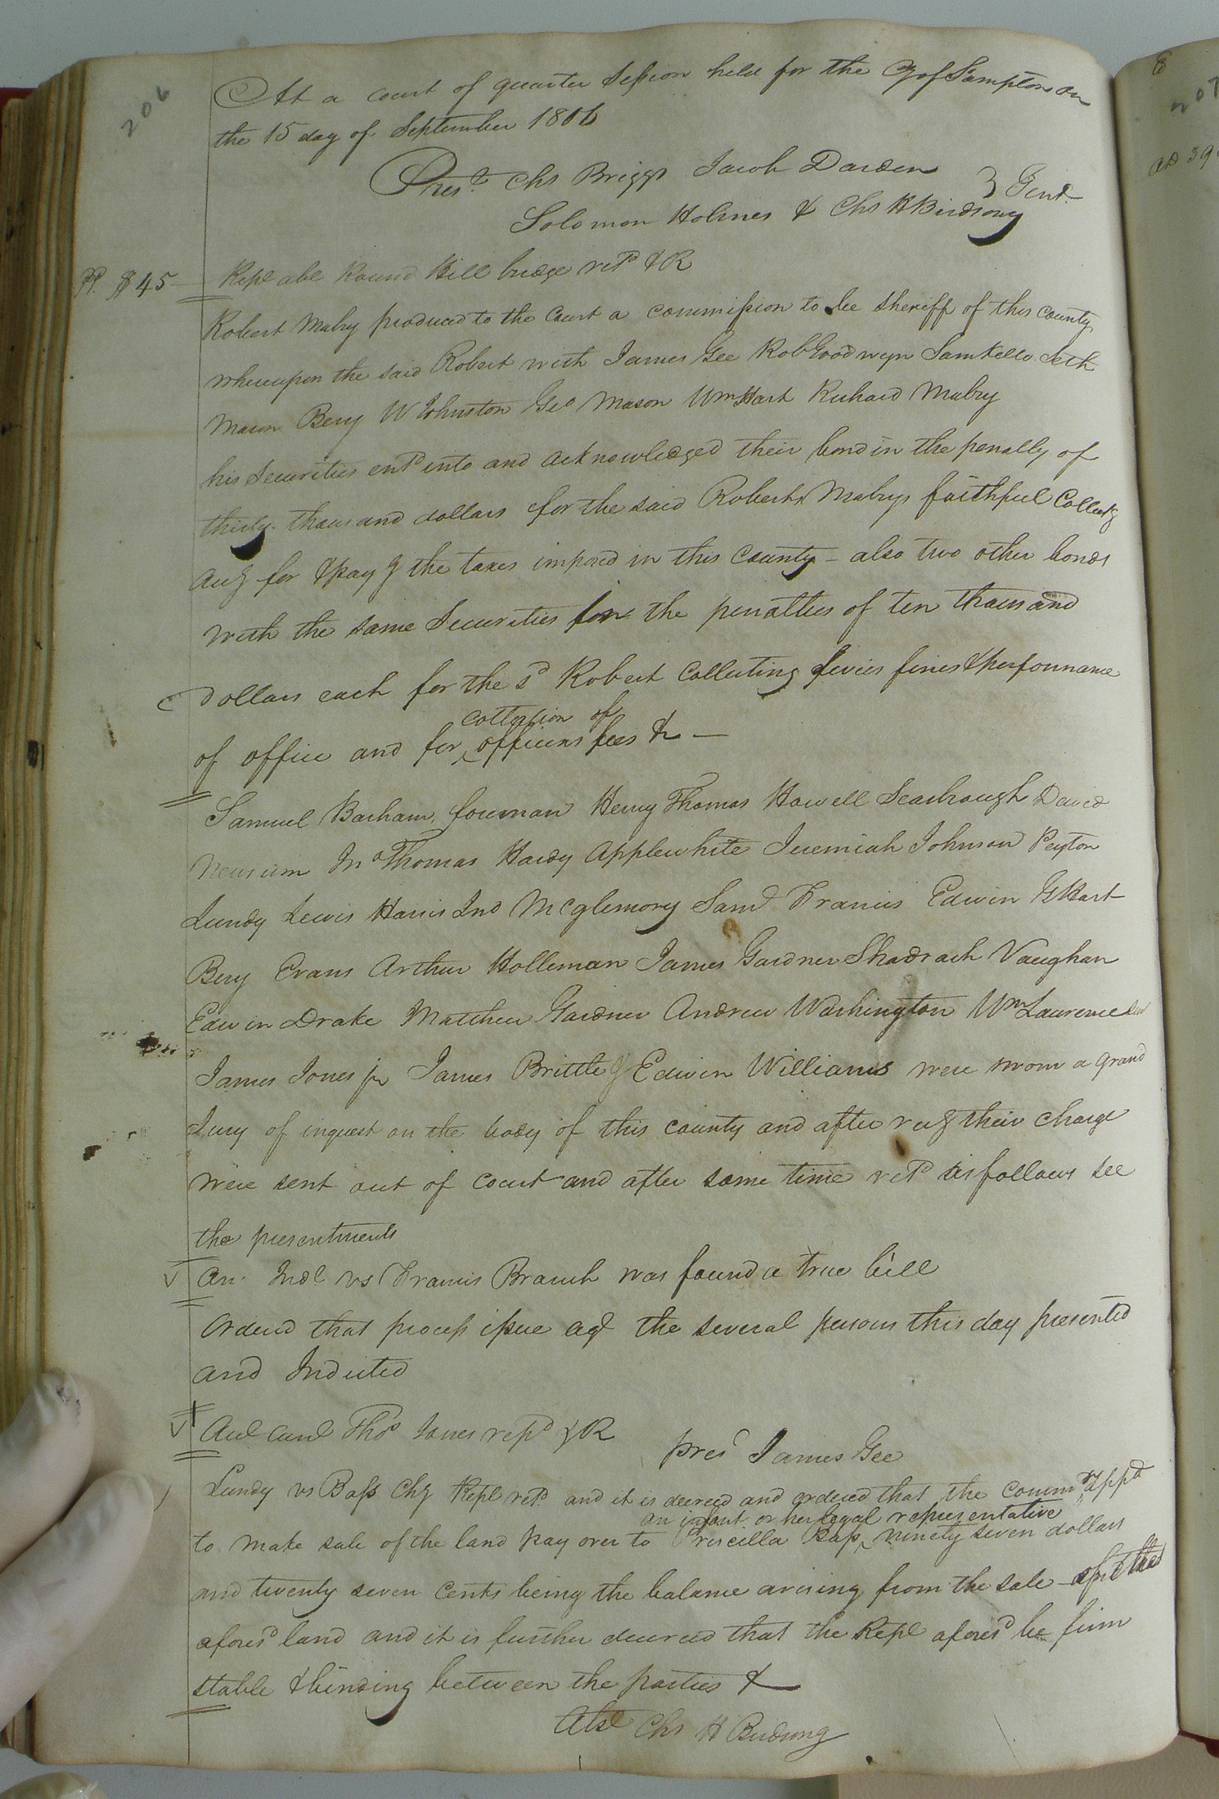 206
At a court of quarter Session held for the Cy of Sampton on
the 15 day of September 1806
Prest. Chs Briggs Jacob Darden } Gent
Solomon Holmes & Chs H Birdsong
$45 Repl abl Round Hill bridge retd & R
Robert Mabry produced to the Court a commission to be sheriff of this county
whereupon the said Robert with James Gee Rob Goodwyn Sam Kello
Mason Benj W Johnston Geo Mason Wm Hart Richard Mabry
his Securities entd into and acknowledged their bond in the penalty of
thirty thousand dollars for the said Roberts Mabrys faithful Collectg
accg for & payg the taxes imposed in this County - also two other bonds
with the same Securities for the penalties of ten thousand
dollars each for the sd Robert Collecting levies fines & performance
collection of
of office and for officers fees & —
Samuel Barham foreman Henry Thomas Howell Scarbrough David
Newsum Jno Thomas Hardy Applewhite Jeremiah Johnson Peyton
Lundy Lewis Harris Jno McGlemory Saml Francis Edwin G Hart
Benj Evans Arthur Holleman James Gardner Shadrach Vaughan
Edwin Drake Matthew Gardner Andrew Washington Wm Lawrence
James Jones jr James Brittle & Edwin Williams were sworn a grand
Jury of inquest on the body of this county and after recg their charge
were sent out of court and after some time retd as follows see
the presentments
An Indt vs Francis Branch was found a true bill
Ordered that process issue agt the several persons this day presented
and Indicted
Thos Jones retd & R
pres James Gee
Lundy vs Bass Chy Repl retd and it is decreed and ordered that the commrs appd
an infant or her legal representative
to make sale of the land pay over to Priscilla Bass ninety seven dollars
and twenty seven cents being the balance arising from the sale of the
aforesd land and it is further decreed that the Repl aforesd be firm
stable & binding between the parties &
Abst Chs H Birdsong
207